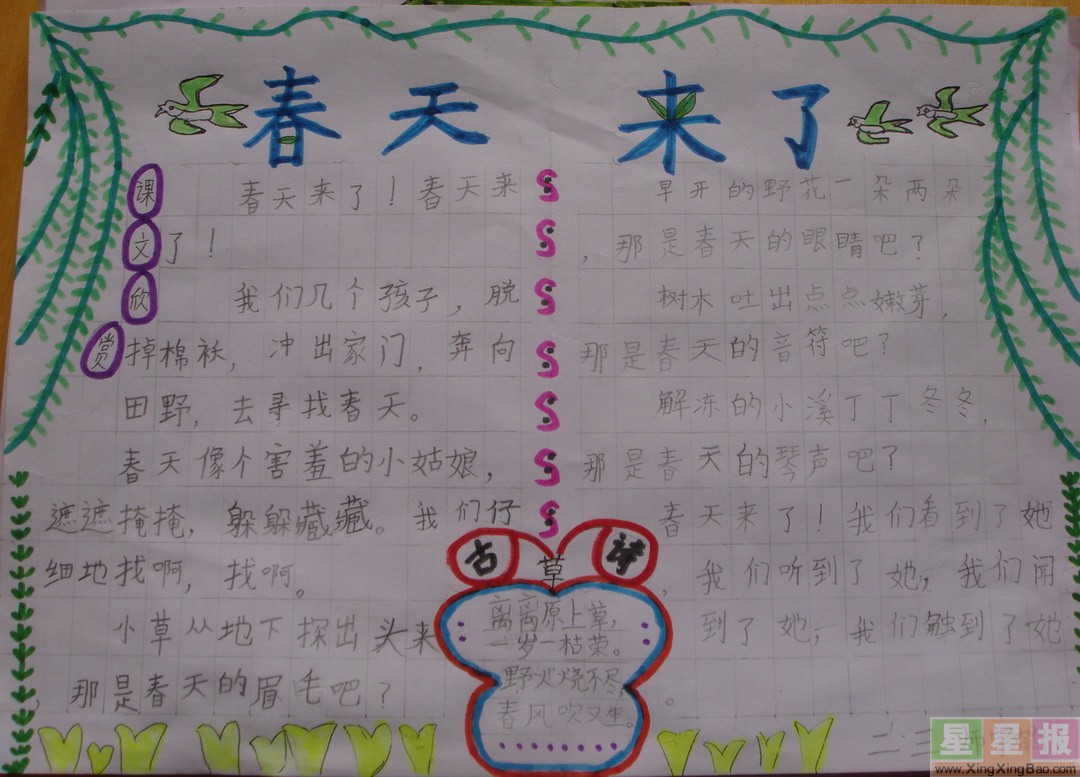 春天来了
课文欣赏
春天来了！春天来
了！
我们几个孩子，脱
掉棉袄，冲出家门，奔向
田野，去寻找春天。
春天像个害羞的小姑娘，
遮遮掩掩，躲躲藏藏。我们仔
细地找啊，找啊。
小草从地下探出头来
，那是春天的眉毛吧？
早开的野花一朵两朵
，那是春天的眼睛吧？
树木吐出点点嫩芽，
那是春天的音符吧？
解冻的小溪丁丁冬冬，
那是春天的琴声吧？
春天来了！我们看到了她
，我们听到了她，我们闻
到了她，我们触到了她
。
古诗
草
离离原上草，
一岁一枯荣。
野火烧不尽，
春风吹又生。
二·三
星星报
www.XingXingBao.com